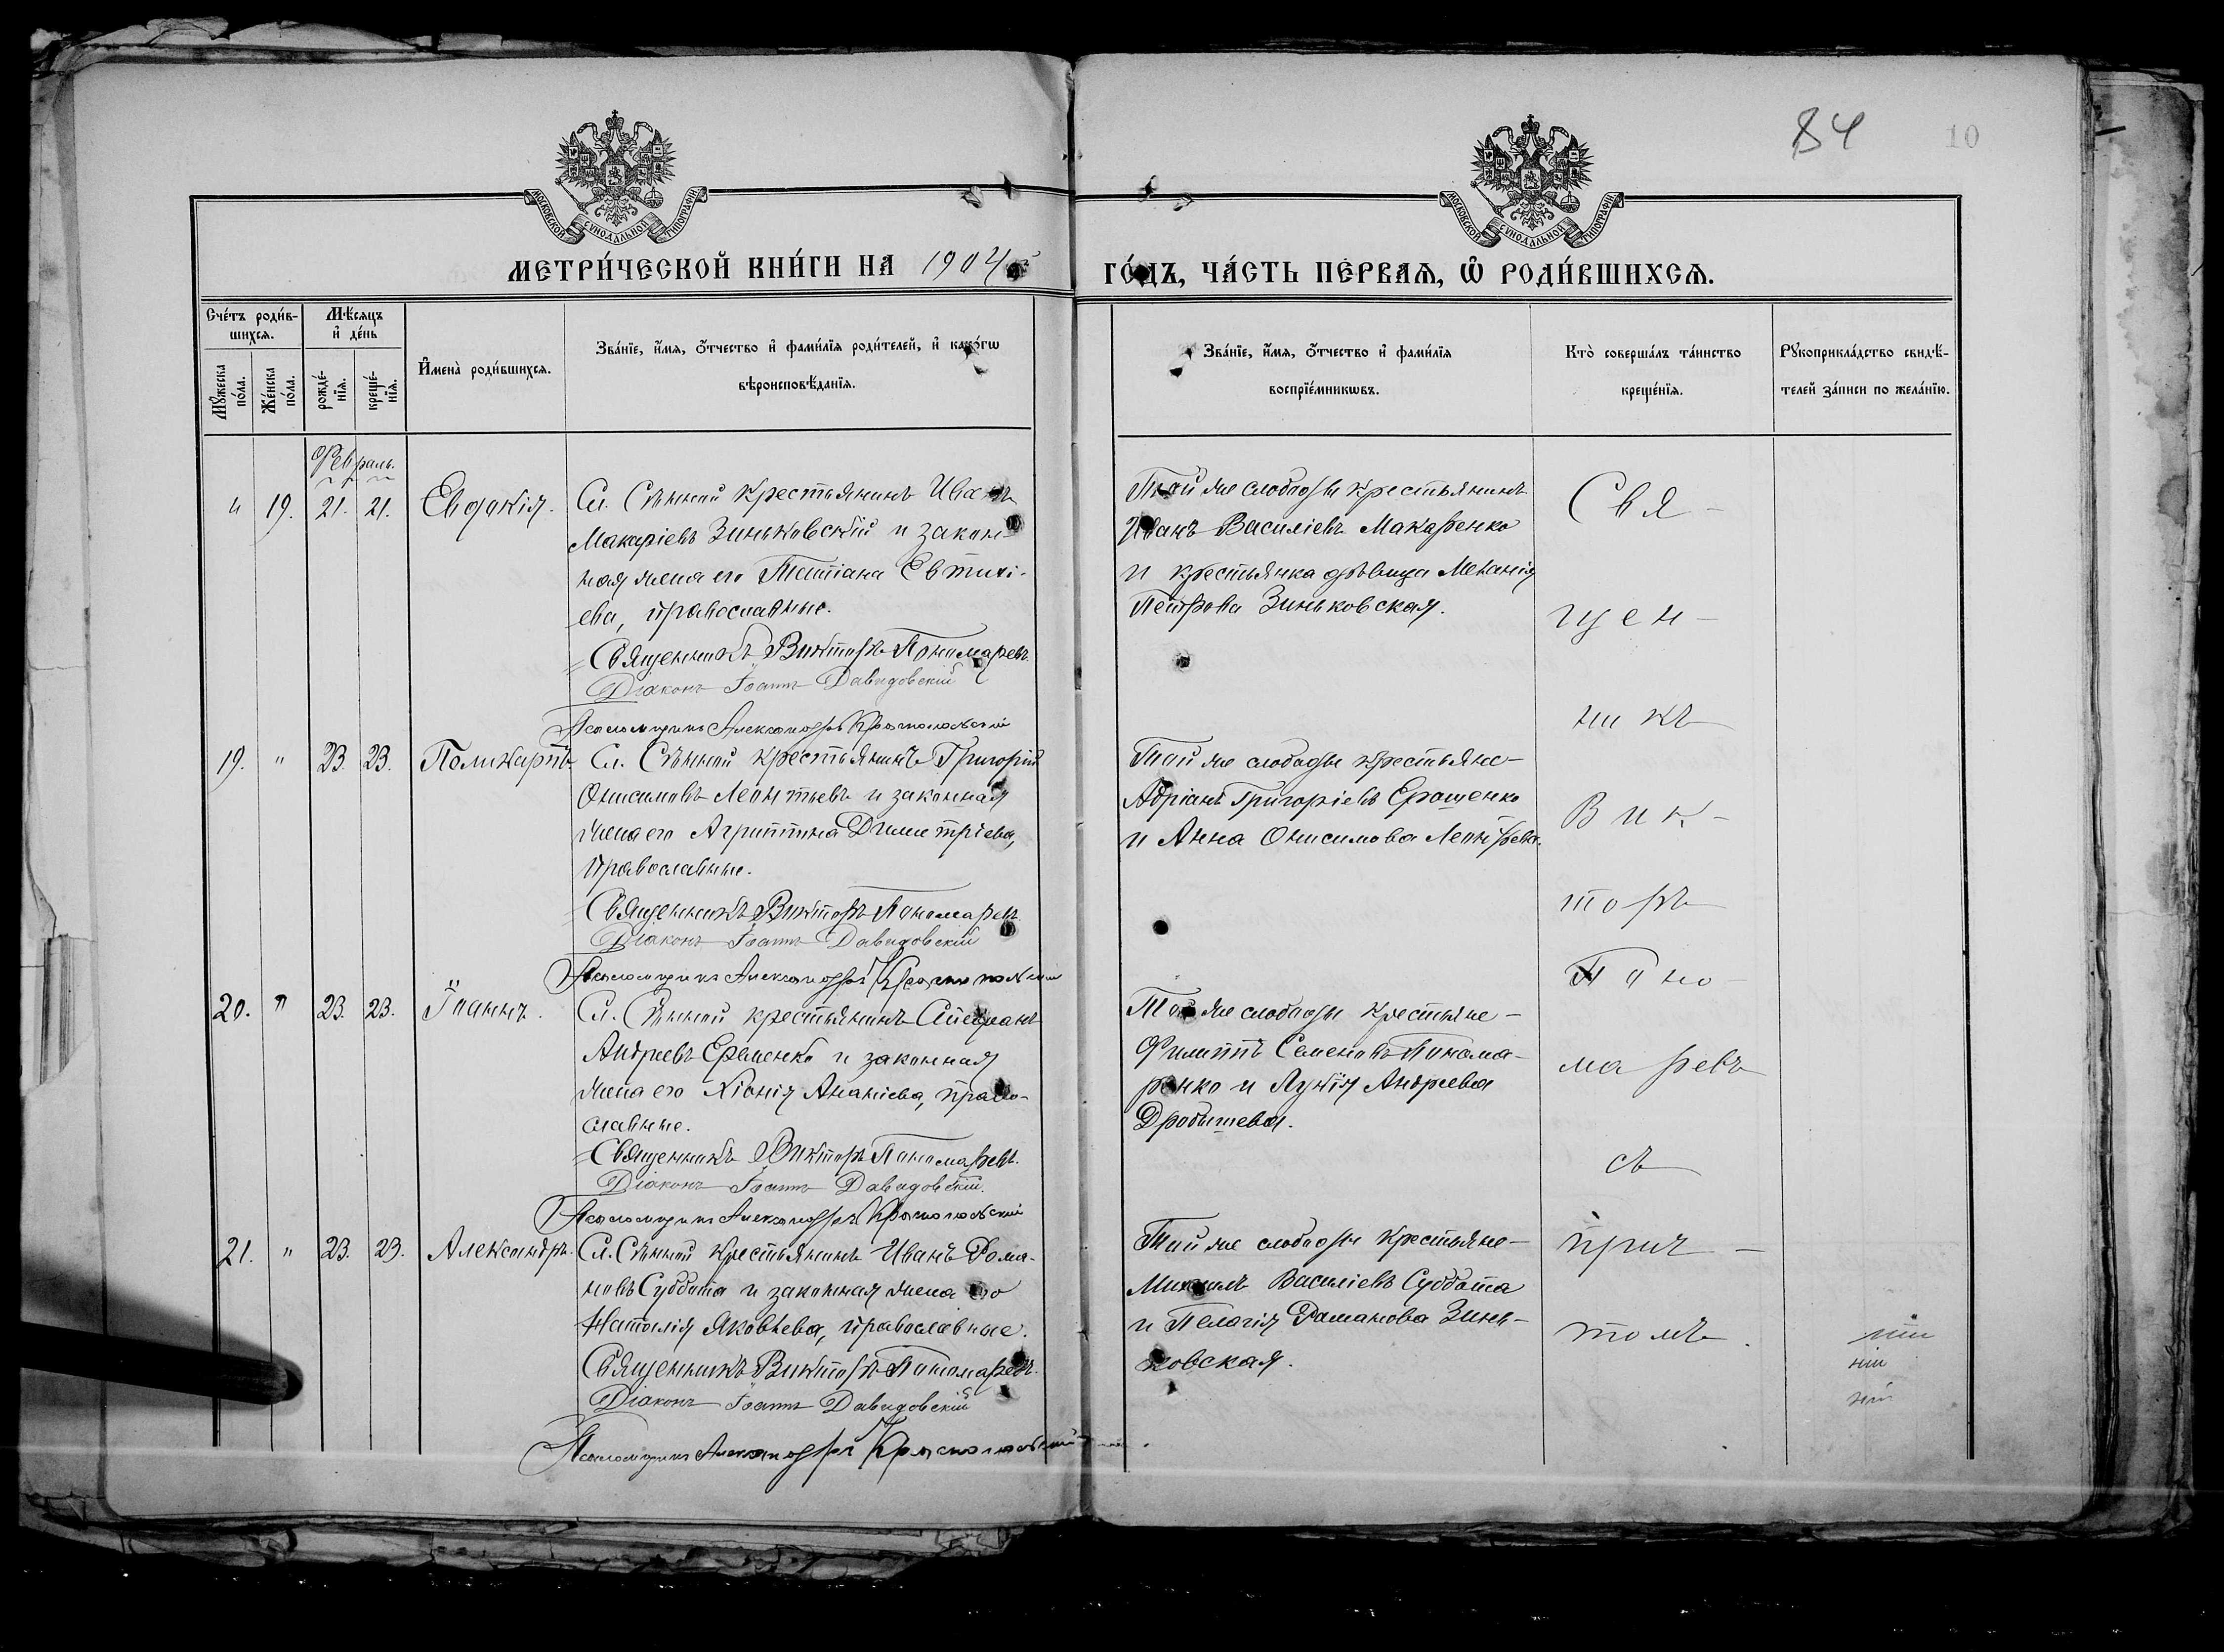 84
10
МОСКОВСКОЙ СѴНОДАЛЬНОЙ ТИПОГРАФІИ
МОСКОВСКОЙ СѴНОДАЛЬНОЙ ТИПОГРАФІИ
МЕТРИ́ЧЕСКОЙ КНИ́ГИ НА 1904й
ГО́ДЪ, ЧА́СТЬ ПЕ́РВАѦ, Ѽ РОДИ́ВШИХСѦ.
Сче́тъ роди́в-
шихсѧ.
Мꙋжеска по́ла.
Же́нска по́ла.
Мѣ́сѧцъ
и҆ де́нь
рожде́-
нїѧ.
креще́-
нїѧ.
И҆мена̀ роди́вшихсѧ.
Зва́нїе, и҆́мѧ, ѻ҆́тчество и҆ фами́лїѧ роди́телей, и҆ како́гѡ
вѣроисповѣ́данїѧ.
Зва́нїе, и҆́мѧ, ѻ҆́тчество и҆ фами́лїѧ
воспрїе́мникѡвъ.
Кто̀ соверша́лъ та́инство
креще́нїѧ.
Рꙋкоприкла́дство свидѣ́-
телей за́писи по жела́нїю.
Февраль.
" 19. 21. 21. Евдокія.
Сл. Сѣнной крестьянинъ Иванъ
Макаріевъ Зиньковскій и закон-
ная жена его Татіана Евтихі-
ева, православные.
Священникъ Викторъ Пономаревъ.
Діаконъ Іоаннъ Давидовскій
Псаломщикъ Александръ Краснопольскій
Той же слободы крестьянинъ
Иванъ Василіевъ Макаренко
и крестьянка дѣвица Меланія
Петрова Зиньковская.
19. " 23. 23. Поликарпъ
Сл. Сѣнной крестьянинъ Григорій
Онисимовъ Леонтьевъ и законная
жена его Агриппина Димитріева,
православные.
Священникъ Викторъ Пономаревъ.
Діаконъ Іоаннъ Давидовскій
Псаломщикъ Александръ Краснопольскій
Той же слободы крестьяне-
Адріанъ Григоріевъ Ерощенко
и Анна Онисимова
20. " 23. 23. Іоаннъ.
Сл. Сѣнной крестьянинъ Стефанъ
Андреевъ Еременко и законная
жена его Хіонія Ананіева, право-
славные.
Священникъ Викторъ Пономаревъ.
Діаконъ Іоаннъ Давидовскій.
Псаломщикъ Александръ Краснопольскій
Той же слободы крестьяне-
Филиппъ Семеновъ Понома-
ренко и Лукія Андреева
Дробышева.
21. " 23. 23. Александръ.
Сл. Сѣнной крестьянинъ Иванъ Рома-
новъ Суббота и законная жена его
Наталія Яковлева, православные.
Священникъ Викторъ Пономаревъ.
Діаконъ Іоаннъ Давидовскій
Псаломщикъ Александръ Краснопольскій
Той же слободы крестьяне-
Михаилъ Василіевъ Суббота
и Пелагія Романова Зинь-
ковская.
Свя-
щен-
никъ
Вик-
торъ
Поно-
маревъ
съ
прич-
томъ.